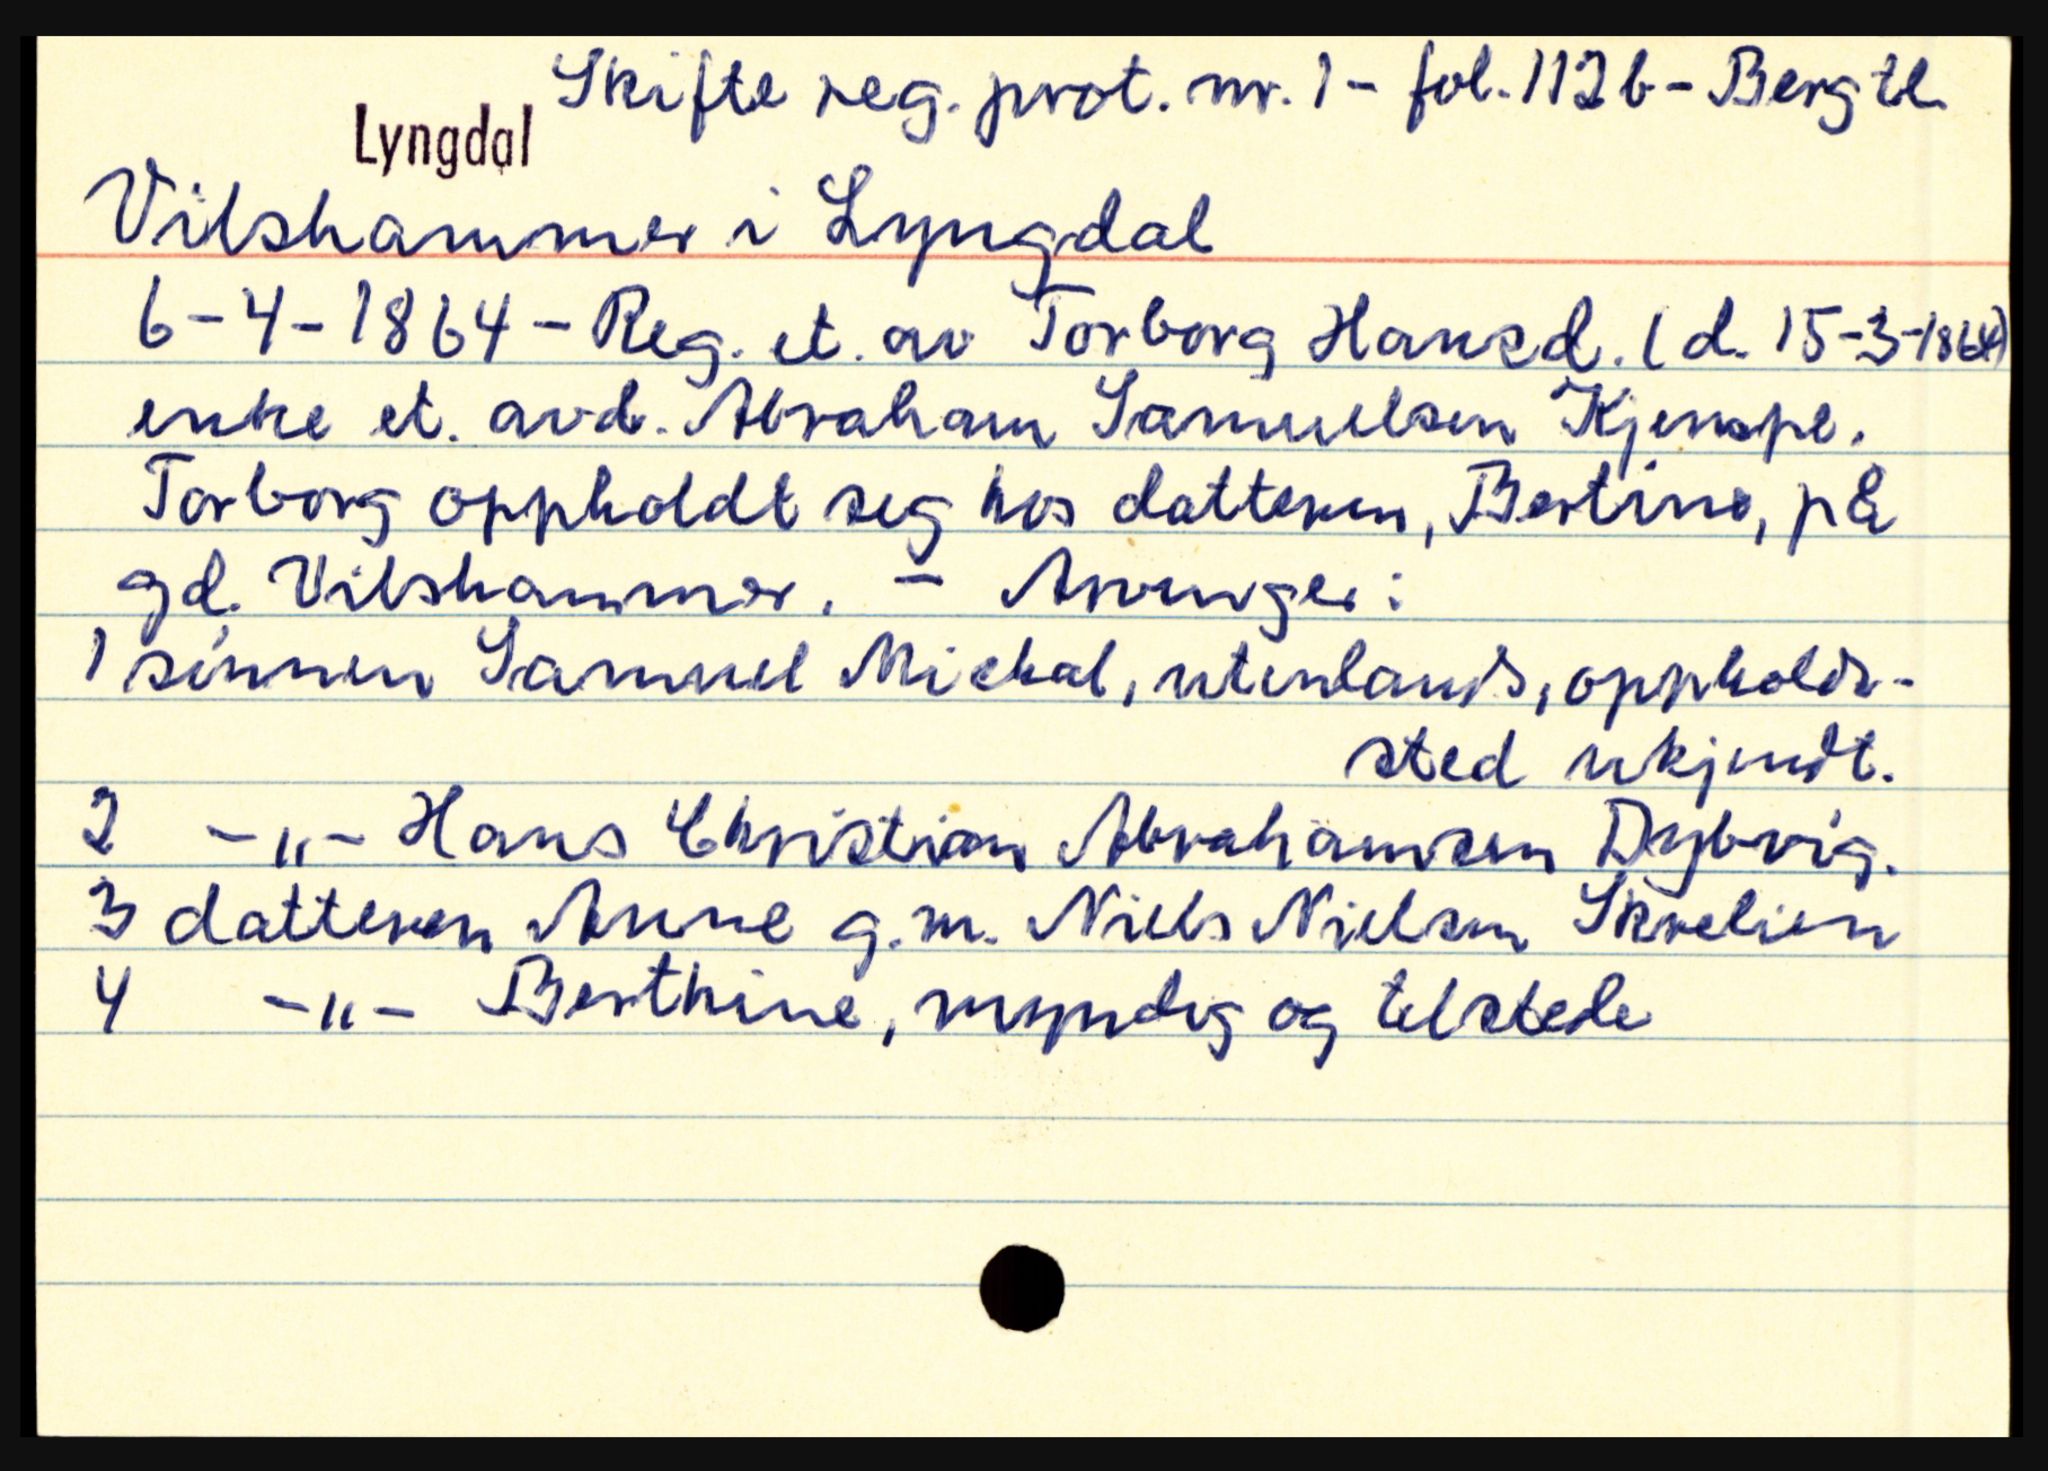 Skifte reg. prot. nr. 1 - fol. 112b - Berg tl.
Lyngdal
Vilshammer i Lyngdal
6-4-1864 - Reg. et. av Torborg Hansd. (d. 15-3-1864)
enke et. avd. Abraham Samuelsen Kjenspe.
Torborg oppholdt seg hos datteren, Bertine, på
gd. Vilshammer. - Arvinger:
1 sønnen Samuel Mickal, utenlands, oppholds-
sted ukjendt.
2 -"- Hans Christian Abrahamsen Dybvig.
3 datteren Anne g.m. Niels Nielsen Skrelien
4 -"- Berthine, myndig og telstede